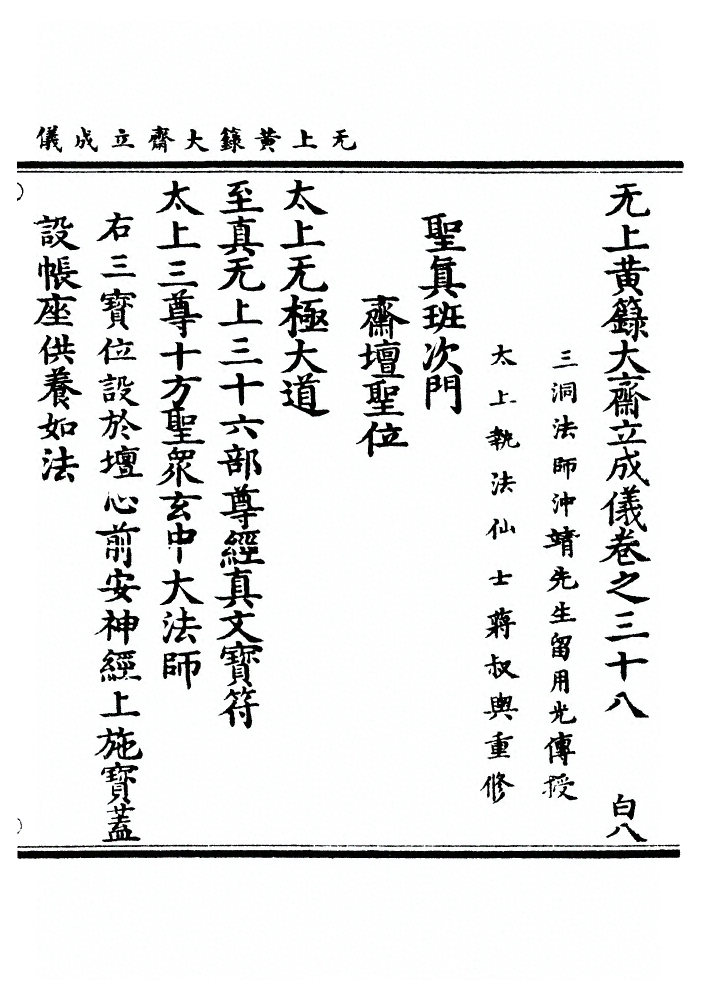 无上黃籙大齋立成儀
无上黃籙大齋立成儀卷之三十八 白八
三洞法師沖靖先生留用光傳授
太上執法仙士蔣叔輿重修
聖真班次門
齋壇聖位
太上无極大道
至真无上三十六部尊經真文寶符
太上三尊十方聖眾玄中大法師
右三寶位設於壇心前安神經上施寶蓋
設帳座供養如法